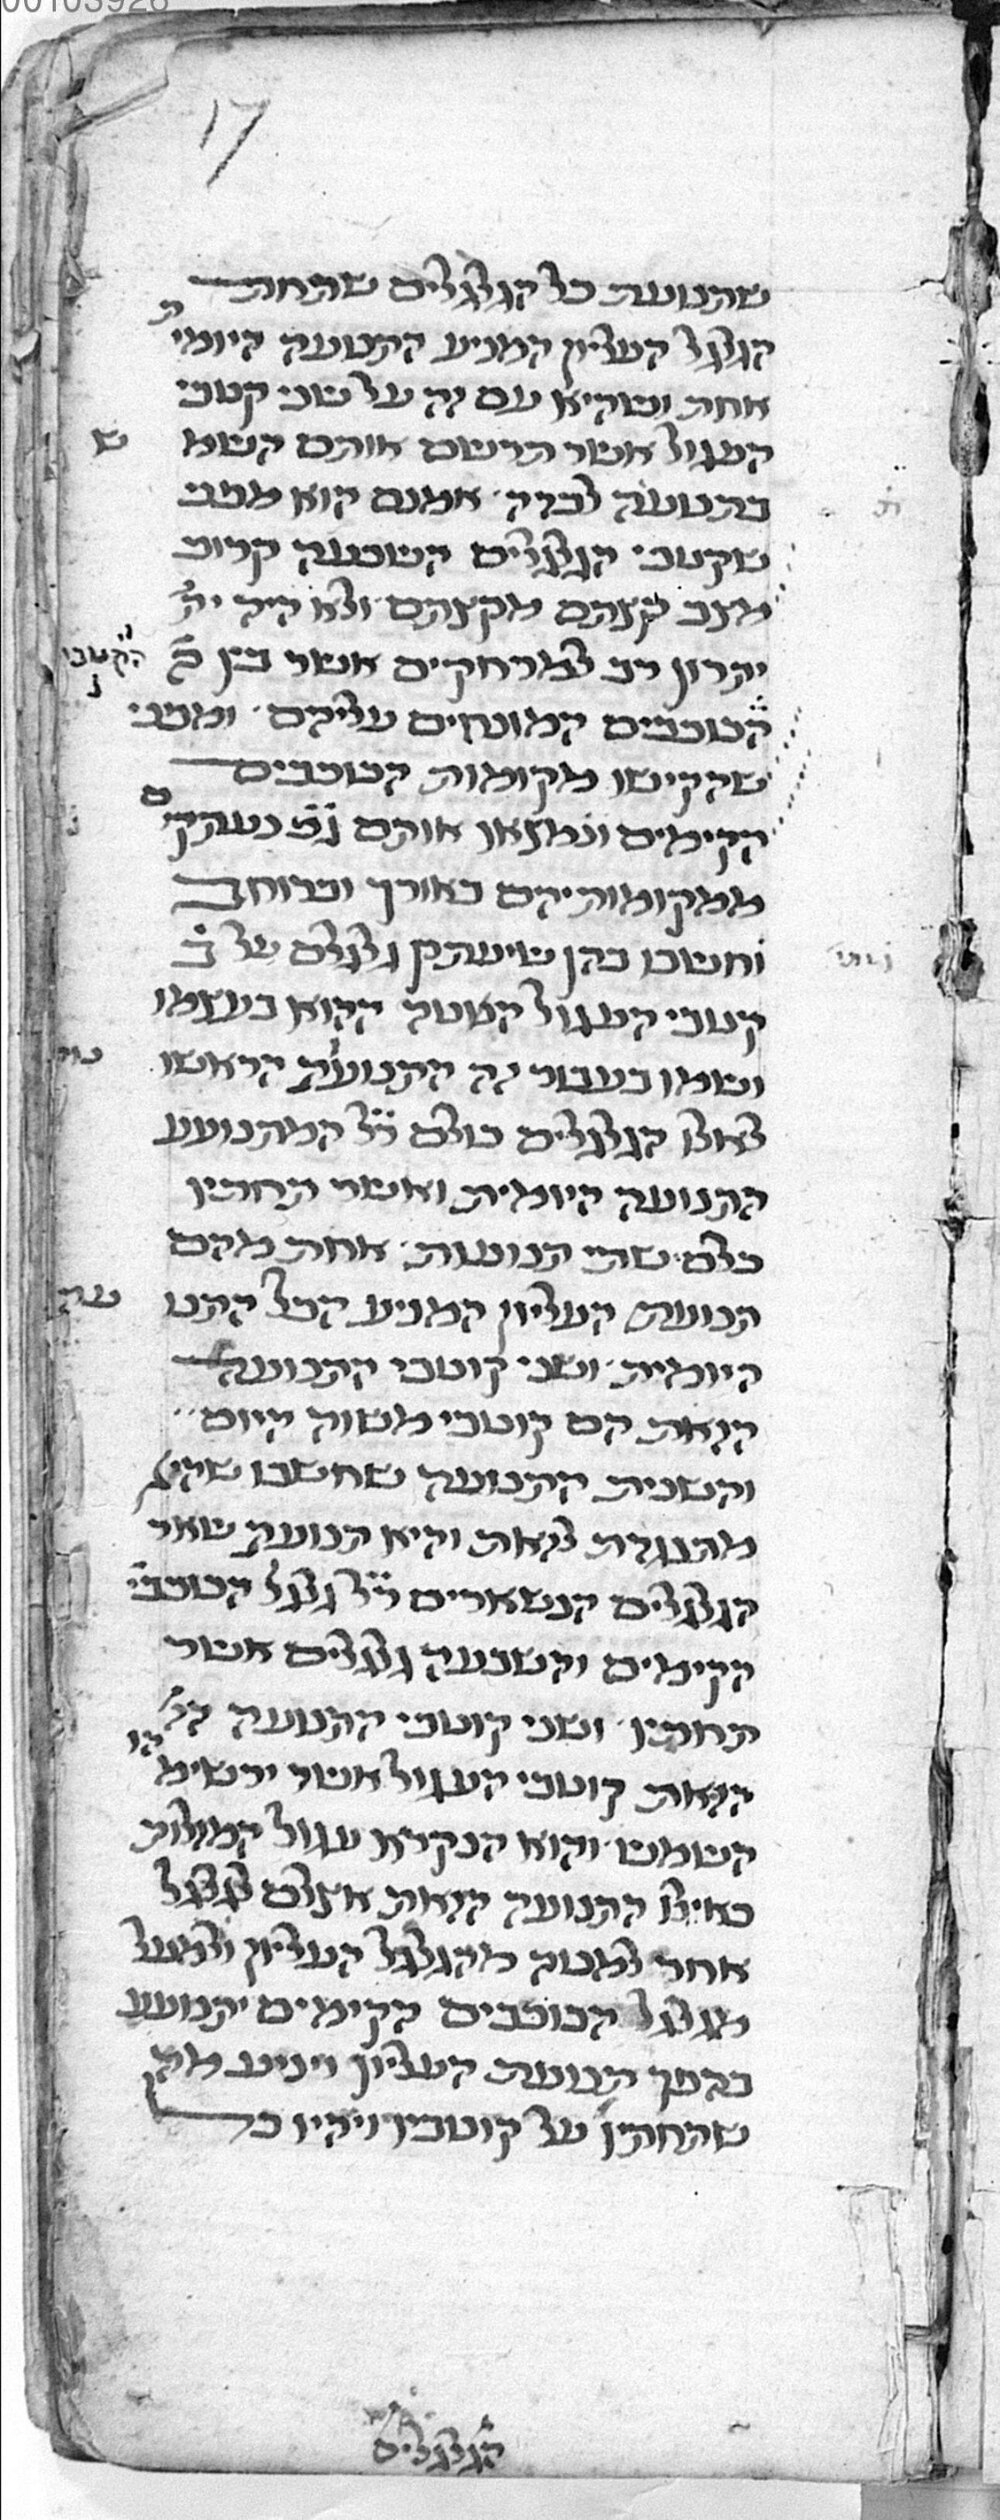 17
שתנועת כל הגלגלים שתחת
הגלגל העליון המניע התנועה היומית
אחת ושהיא עם זה על שני קטבי
העגול אשר תרשם אותם השמש
בתנועה לבדה אמנם הוא מפני
שקטבי הגלגלים השבעה קרוב
מצב קצתם מקצתם ולא היה יה׳
יתרון רב במרחקים אשר בין ב׳ הקטבו
הכוכבים המונחים עליהם ומפני
שהקישו מקומות הכוכבים
הקימים ונמצאו אותם ג״כ נעתקים
ממקומותיהם באורך וברוחב
וחשבו בהן שיעתק גלגלם על ב׳
קטבי העגול הנוטה ההוא בעצמו
ושמו בעבור זה התנועה הראשו
לאלו הגלגלים כולם ר״ל המתנועע
התנועה היומית ואשר תחתיו
כלם שתי תנועות אחת מהם
תנועת העליון המניע הכל התנו עה
היומית ושני קוטבי התנועה
הזאת הם קוטבי משוה היום
והשנית התנועה שחשבו שהיא
מתנגדת לזאת והיא תנועת שאר
הגלגלים הנשארים ר״ל גלגל הכוכבי׳
הקימים והשבעה גלגלים אשר
תחתיו ושני קוטבי התנועה הז׳
הזאת קוטבי העגול אשר ירשימהו
השמש והוא הנקרא עגול המזלות
כאילו התנועה הזאת אצלם לגלגל
אחר למטה מהגלגל העליון ולמעל
מגלגל הכוכבים הקימים יתנועע
בהפך תנועת העליון ויניע מה
שתחתיו על קוטביו ויהיו כ
הגלגלים